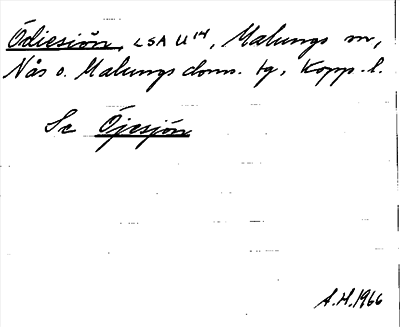 Ödiesiön, LSA U 14, Malungs m,
Nås o. Malungs doms. tg, Kopp. l.
Se Öjesjön
A.H. 1966